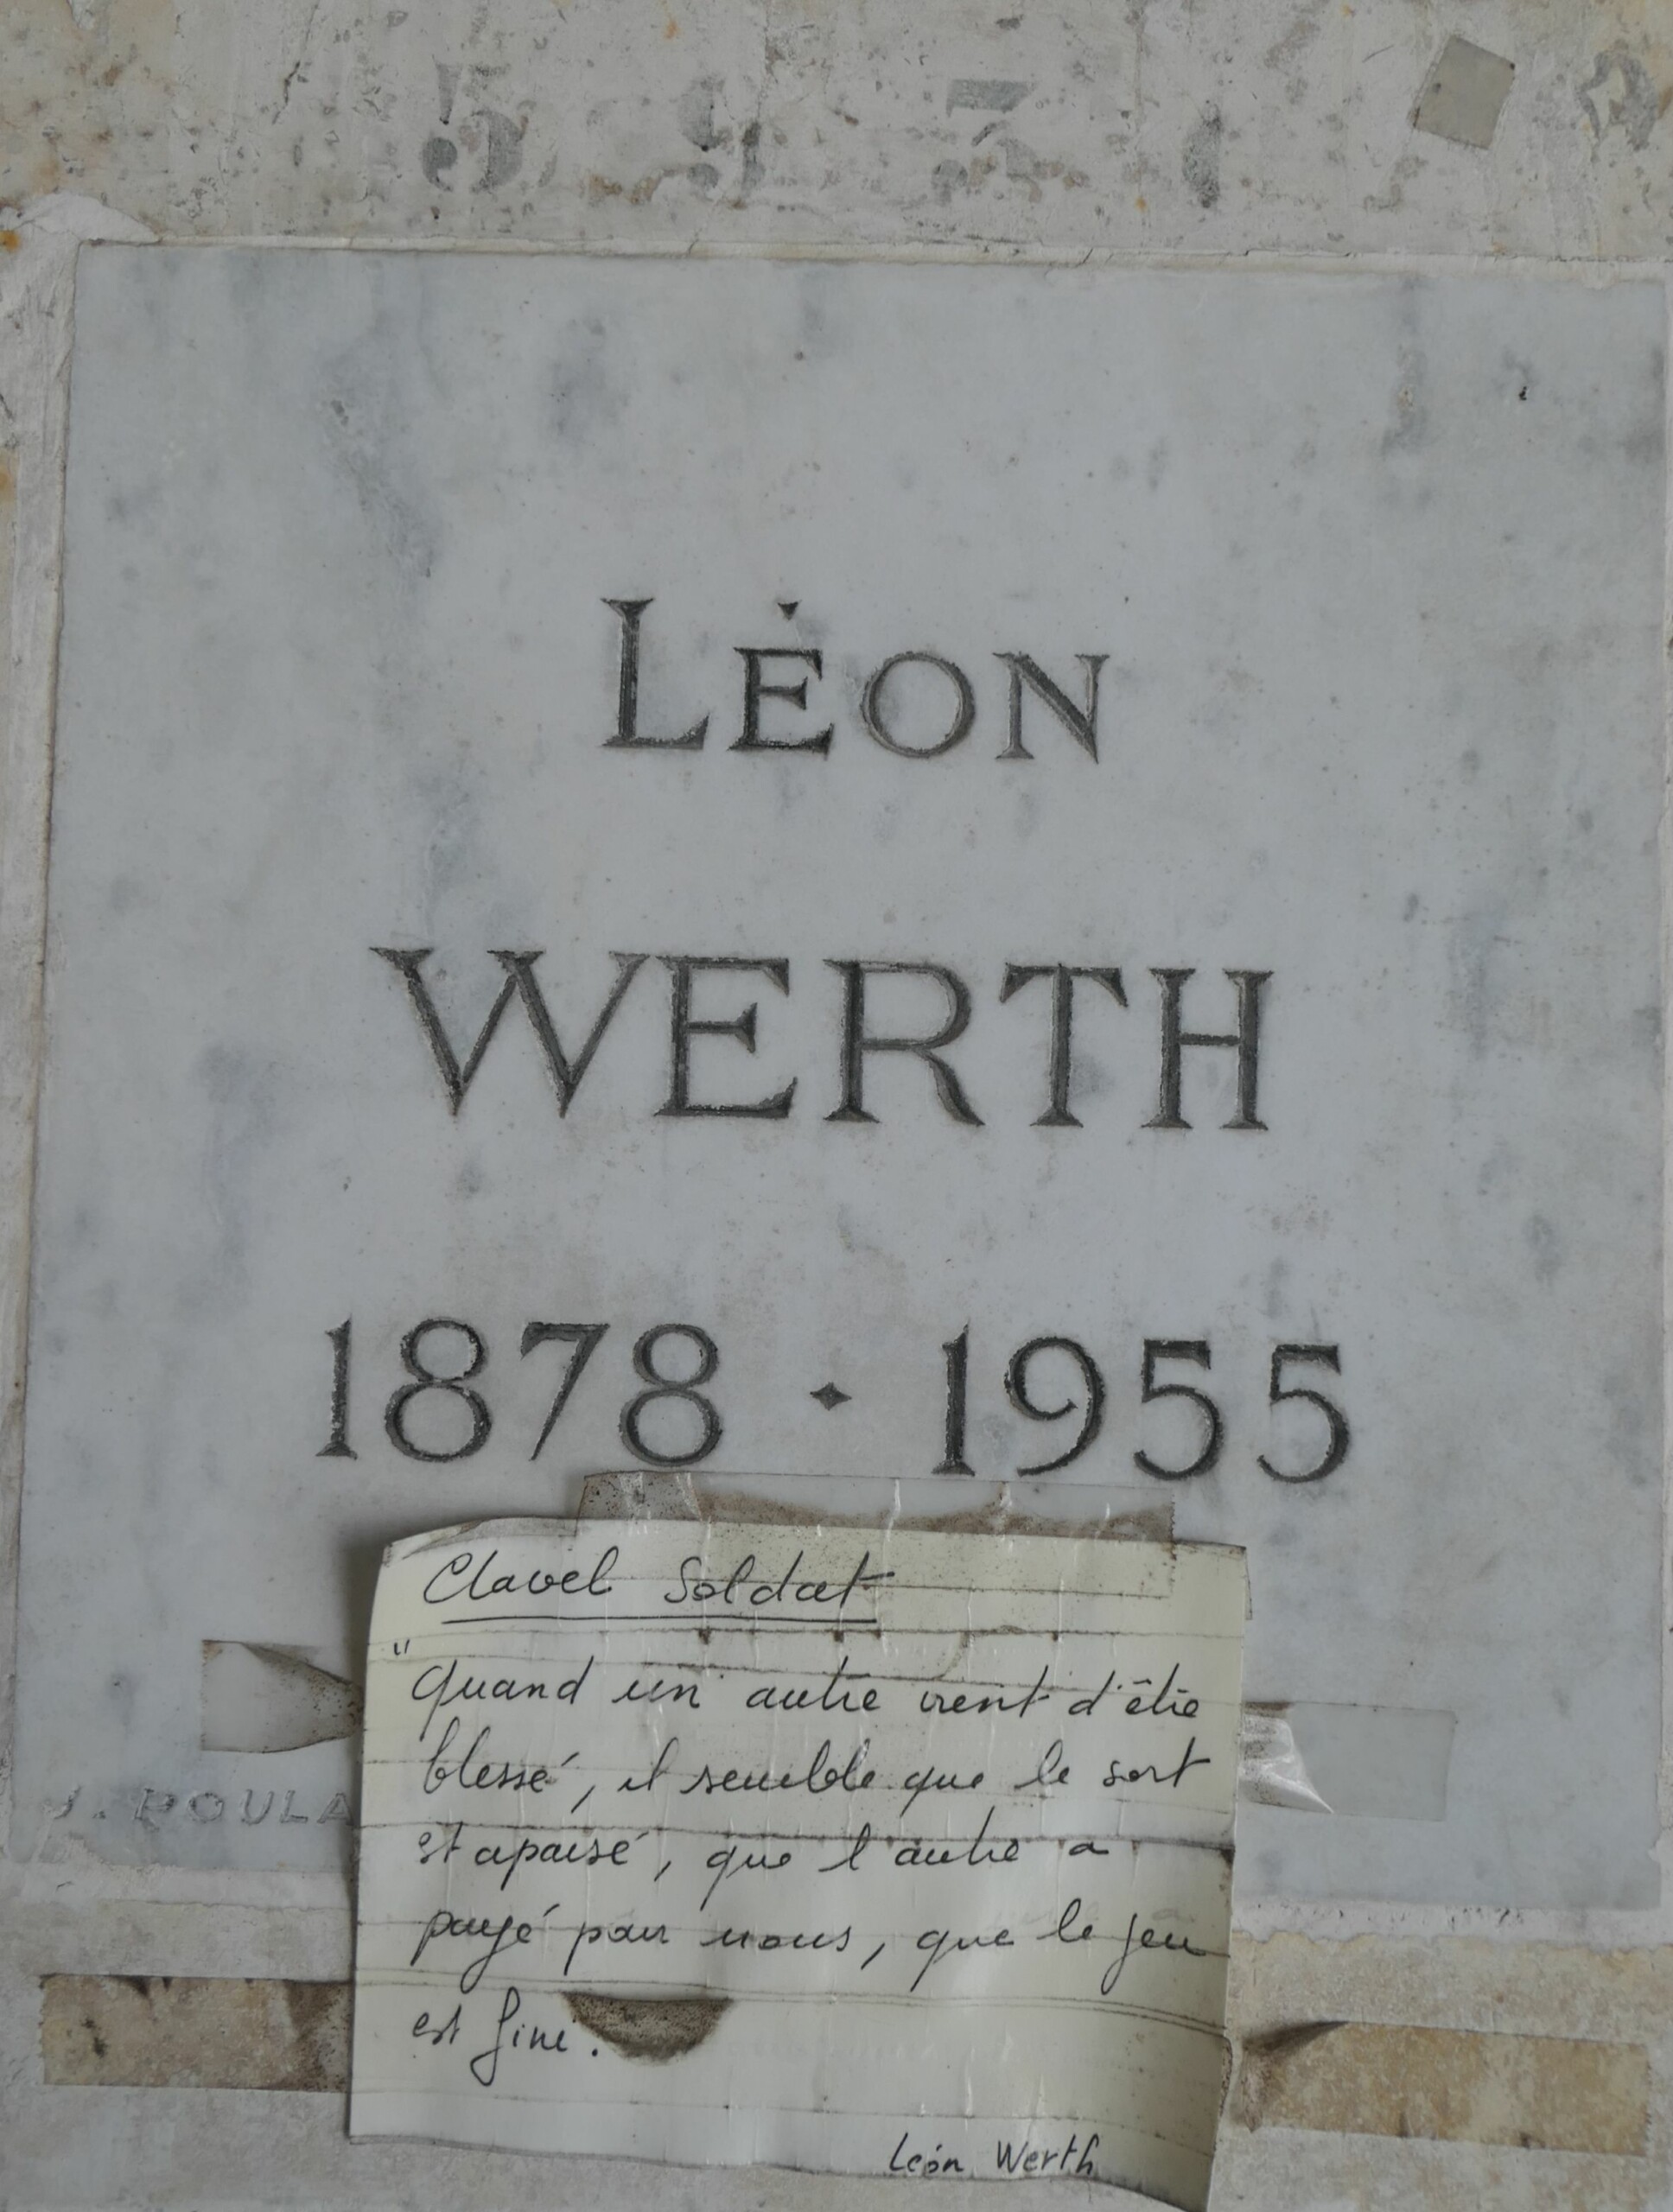 LÉON
WERTH
1878 · 1955
Clavel Soldat
"Quand un autre vient d'être
blessé, il semble que le sort
est apaisé, que l'autre a
payé pour nous, que le jeu
est fini.
Léon Werth
J. POULA